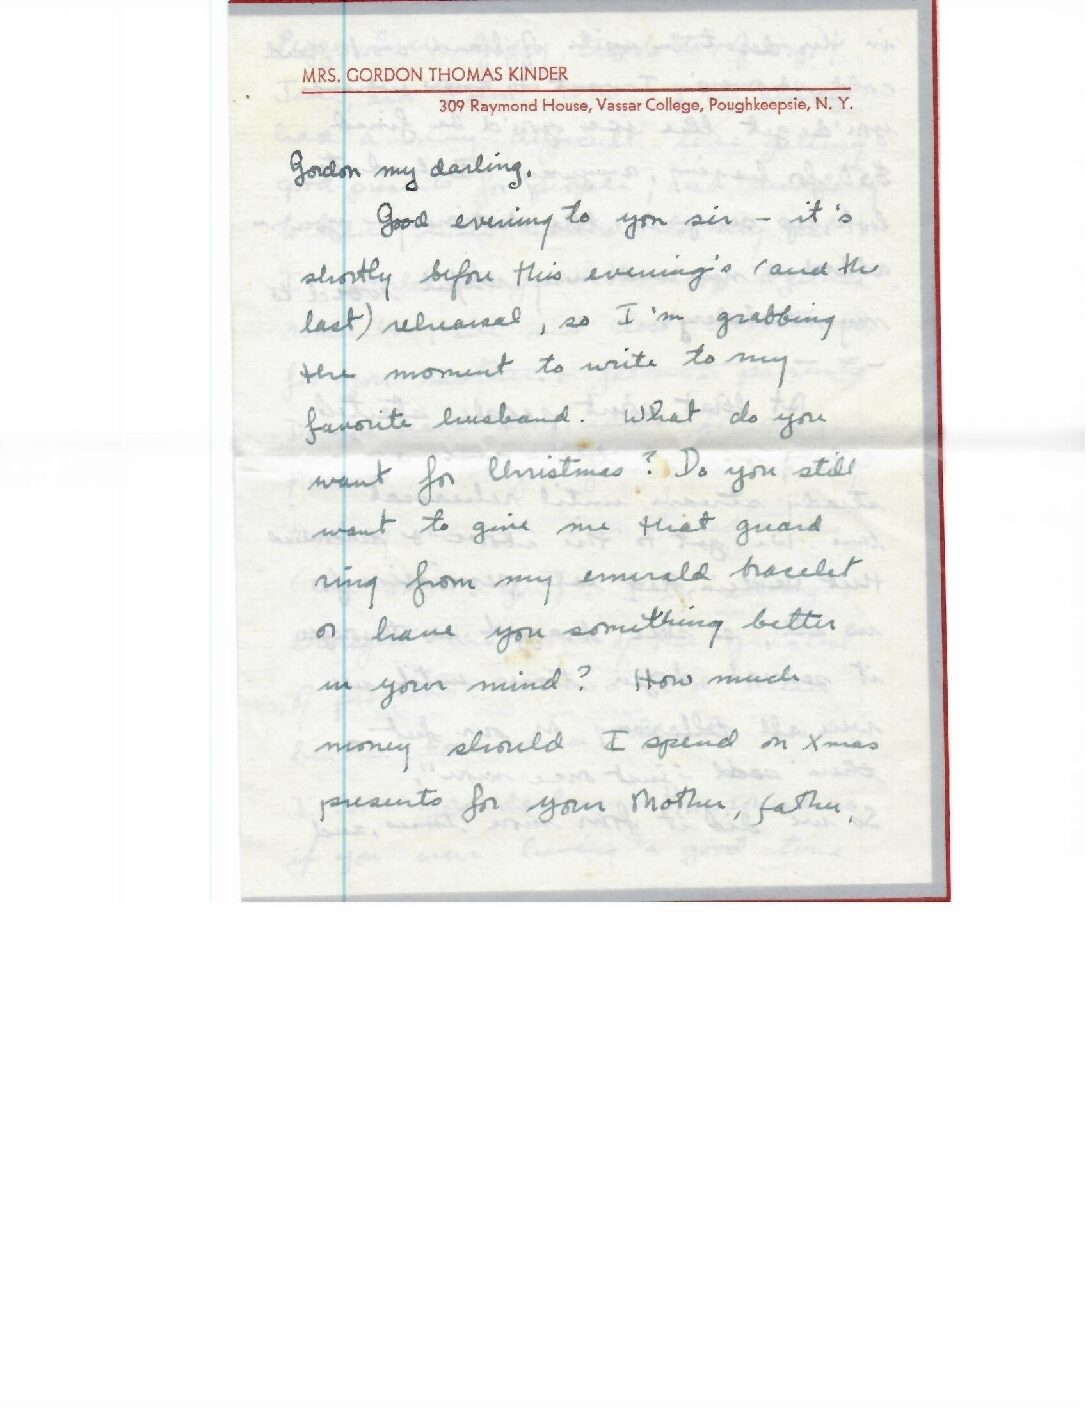 MRS. GORDON THOMAS KINDER
309 Raymond House, Vassar College, Poughkeepsie, N. Y.
Gordon my darling.
Good evening to you sir – it's
shortly before this evening's (and the
last) rehearsal, so I'm grabbing
the moment to write to my
favorite husband. What do you
want for Christmas? Do you still
want to give me that guard
ring from my emerald bracelet
or have you something better
in your mind? How much
money should I spend on Xmas
presents for your Mother, father,